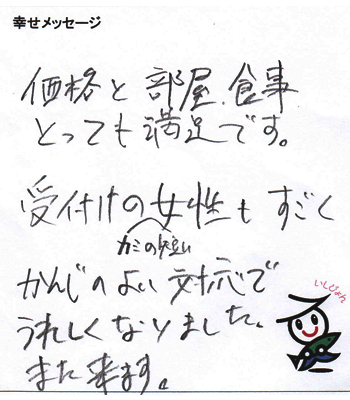 幸せメッセージ
価格と部屋、食事
とっても満足です。
受付けの女性も すごく
カミの短い
かんじのよい対応で
うれしくなりました。
また来ます。
いしじょん